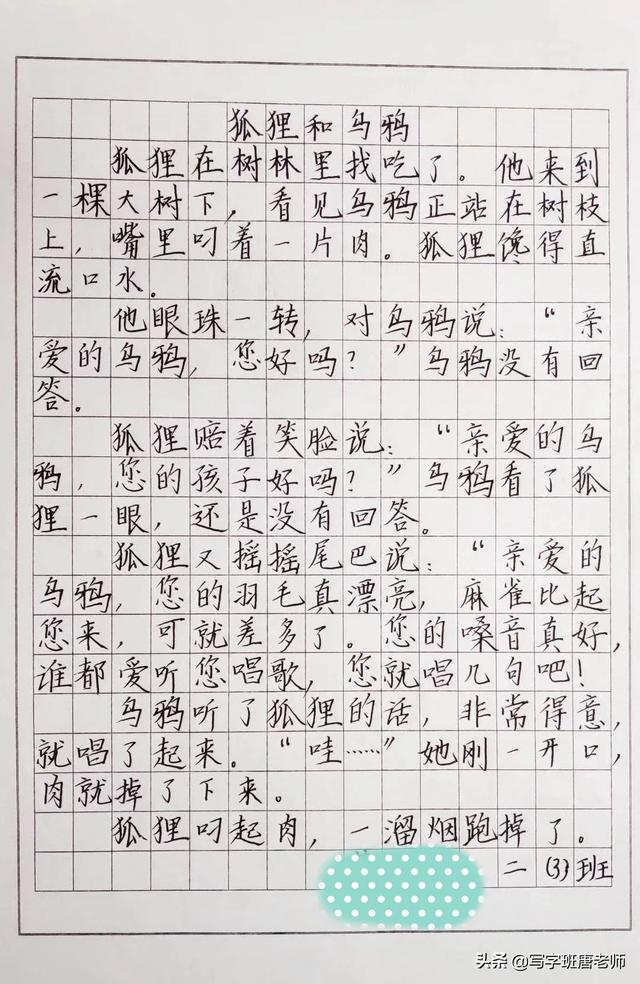 狐狸和乌鸦
狐狸在树林里找吃了。他来到
一棵大树下，看见乌鸦正站在树枝
上，嘴里叼着一片肉。狐狸馋得直
流口水。
他眼珠一转，对乌鸦说：“亲
爱的乌鸦，您好吗？”乌鸦没有回
答。
狐狸赔着笑脸说：“亲爱的乌
鸦，您的孩子好吗？”乌鸦看了狐
狸一眼，还是没有回答。
狐狸又摇摇尾巴说：“亲爱的
乌鸦，您的羽毛真漂亮，麻雀比起
您来，可就差多了。您的嗓音真好，
谁都爱听您唱歌，您就唱几句吧！
乌鸦听了狐狸的话，非常得意，
就唱了起来。“哇……”她刚一开口，
肉就掉了下来。
狐狸叼起肉，一溜烟跑掉了。
二（3）班
头条 @写字班唐老师